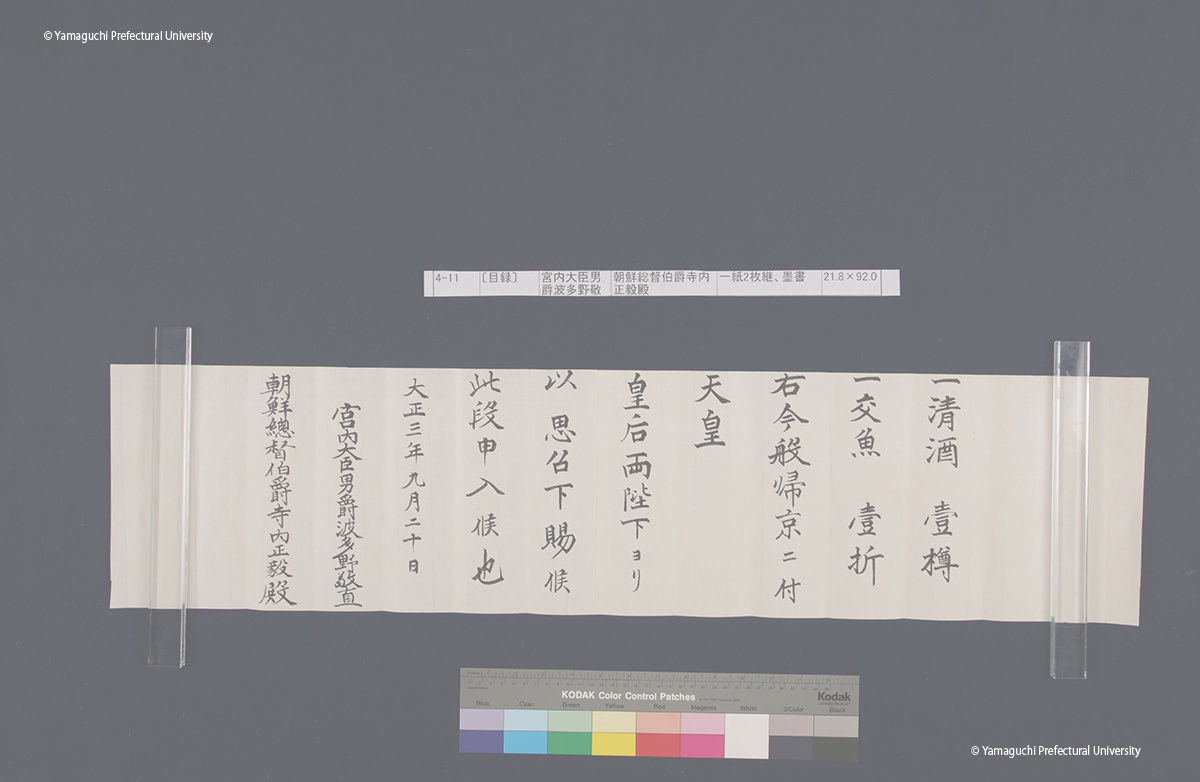 © Yamaguchi Prefectural University
4-11 〔目録〕 宮内大臣男爵波多野敬 朝鮮総督伯爵寺内正毅殿 一紙2枚継、墨書 21.8×92.0
一清酒 壹樽
一交魚 壹折
右今般帰京ニ付
天皇
皇后両陛下ヨリ
以 思召下賜候
此段申入候也
大正三年九月二十日
宮内大臣男爵波多野敬直
朝鮮總督伯爵寺内正毅殿
KODAK Color Control Patches
Kodak
Blue Cyan Green Yellow Red Magenta White 3/Color Black
© Yamaguchi Prefectural University